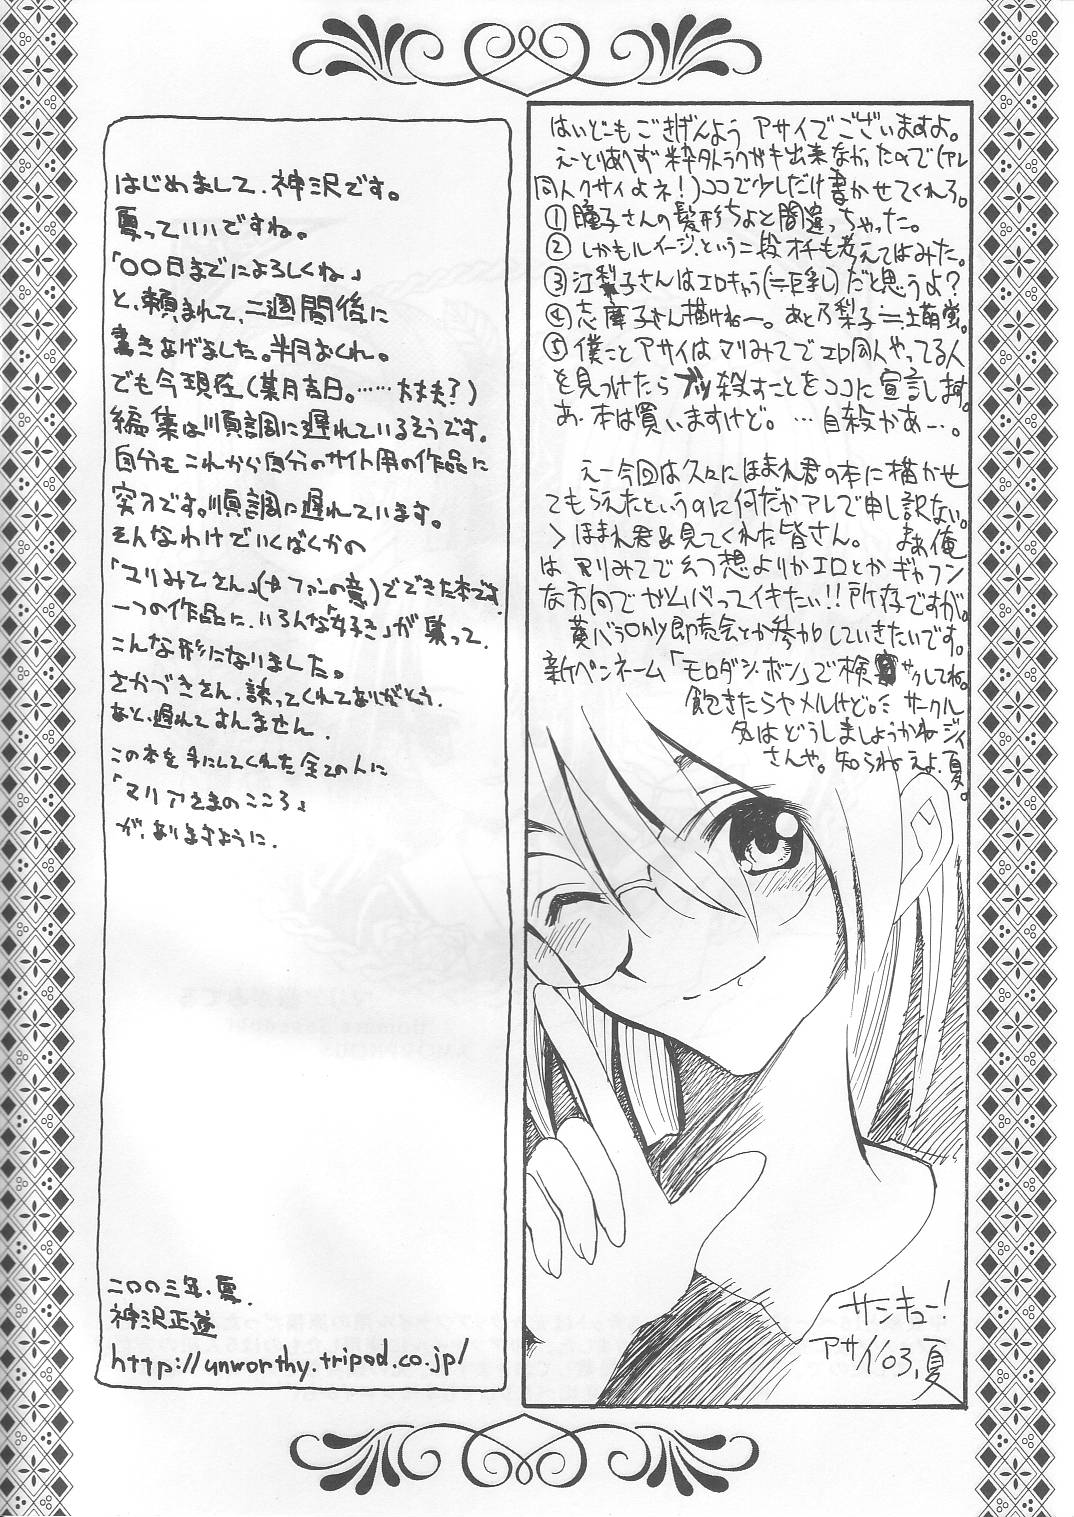 はいどーもごきげんよう アサイでございますよ。
えーとりあえず粋なトラクガキ出来なかったので(アレ
同人クサイよネ!)ココで少しだけ書かせてくれろ。
①瞳子さんの髪形ちょと間違っちゃった。
② しかもルイージ.という二段オチも考えてはみた。
③江梨子さんはエロキャラ(=巨乳)だと思うよ?
④志摩子さん描けねー。あと乃梨子≒土萌蛍。
⑤僕ことアサイはマリみてでエロ同人やってる人
を見つけたらブッ殺すことをココに宣言します。
あ、本は買いますけど。…自殺かあー。
えー今回は久々にほまれ君の本に描かせ
てもらえたというのに何だかアレで申し訳ない。
>ほまれ君&見てくれた皆さん。 まぁ俺
は マリみてで幻想よりかエロとかギャフン
な方向でガムバッてイキたい!!所存ですが。
黄バラonly即売会とか参加していきたいです。
新ペンネーム「モロダシ・ボン」で検サクしてね。
飽きたらヤメルけど。サークル
名はどうしましょうかねジイ
さんや。知らねぇよ、夏。
サンキュー!
アサイ03,夏
はじめまして、神沢です。
夏っていいですね。
「〇〇日までによろしくね」
と、頼まれて、二週間後に
書きあげました。半月おくれ。
でも今現在(某月吉日。……大丈夫?)
編集は順調に遅れているそうです。
自分もこれから自分のサイト用の作品に
突入です。順調に遅れています。
そんなわけでいくばくかの
「マリみてさん」(※ファンの意)でできた本です
一つの作品に、いろんな「好き」が集って、
こんな形になりました。
さかづきさん、誘ってくれてありがとう。
あと、遅れてすんません.
この本を手にしてくれた全ての人に
「マリアさまのこころ」
が、ありますように.
二〇〇三年.夏.
神沢正道
http://unworthy.tripod.co.jp/